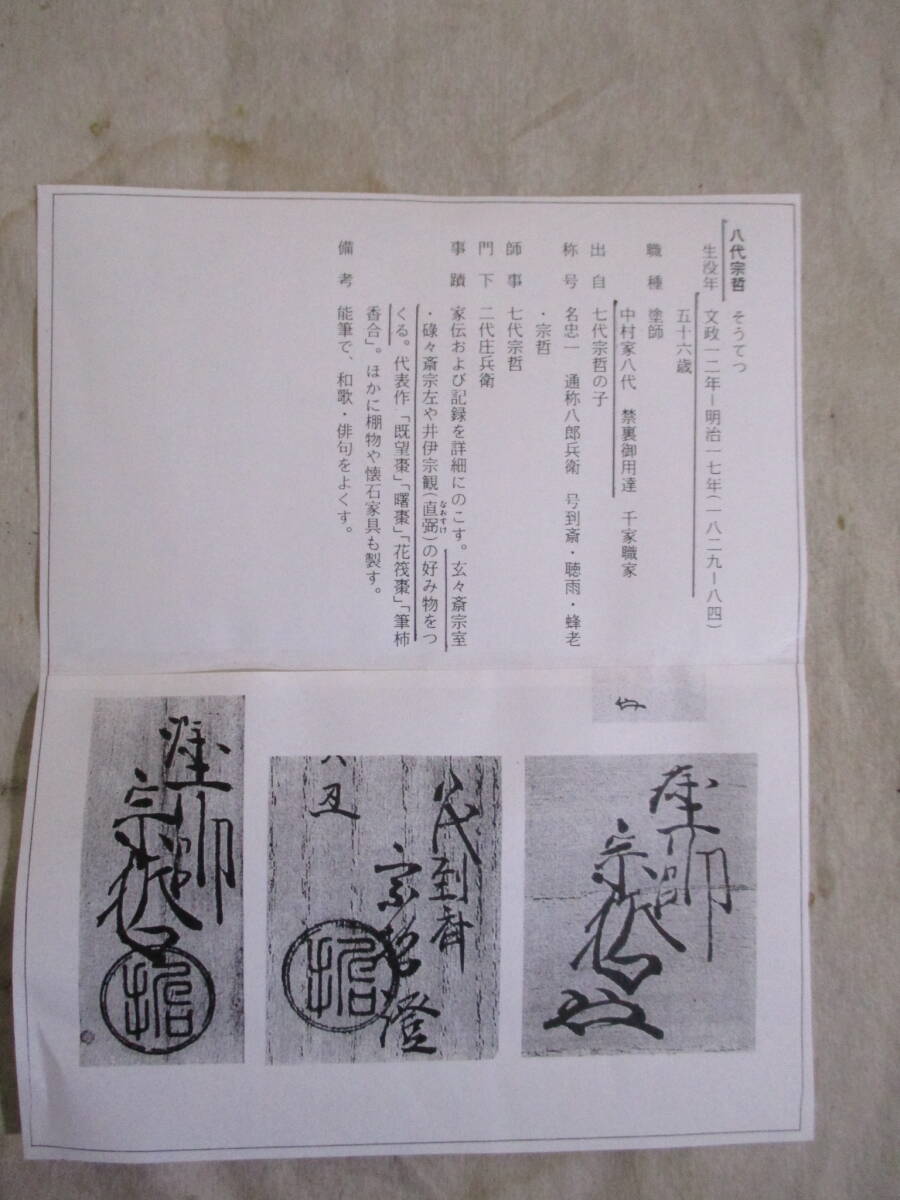 八代宗哲 そうてつ
生没年 文政一二年ー明治一七年(一八二九ー八四)
五十六歳
職種 塗師
中村家八代 禁裏御用達 千家職家
出自 七代宗哲の子
称号 名忠一 通称八郎兵衛 号到斎・聴雨・蜂老
・宗哲
師事 七代宗哲
門下 二代庄兵衛
事蹟 家伝および記録を詳細にのこす。玄々斎宗室
・碌々斎宗左や井伊宗観(直弼なおすけ)の好み物をつ
くる。代表作「既望棗」「曙棗」「花筏棗」「筆柿
香合」。ほかに棚物や懐石家具も製す。
備考 能筆で、和歌・俳句をよくす。
塗師
宗哲
八代到斎
宗哲
證
丑
塗師
宗哲